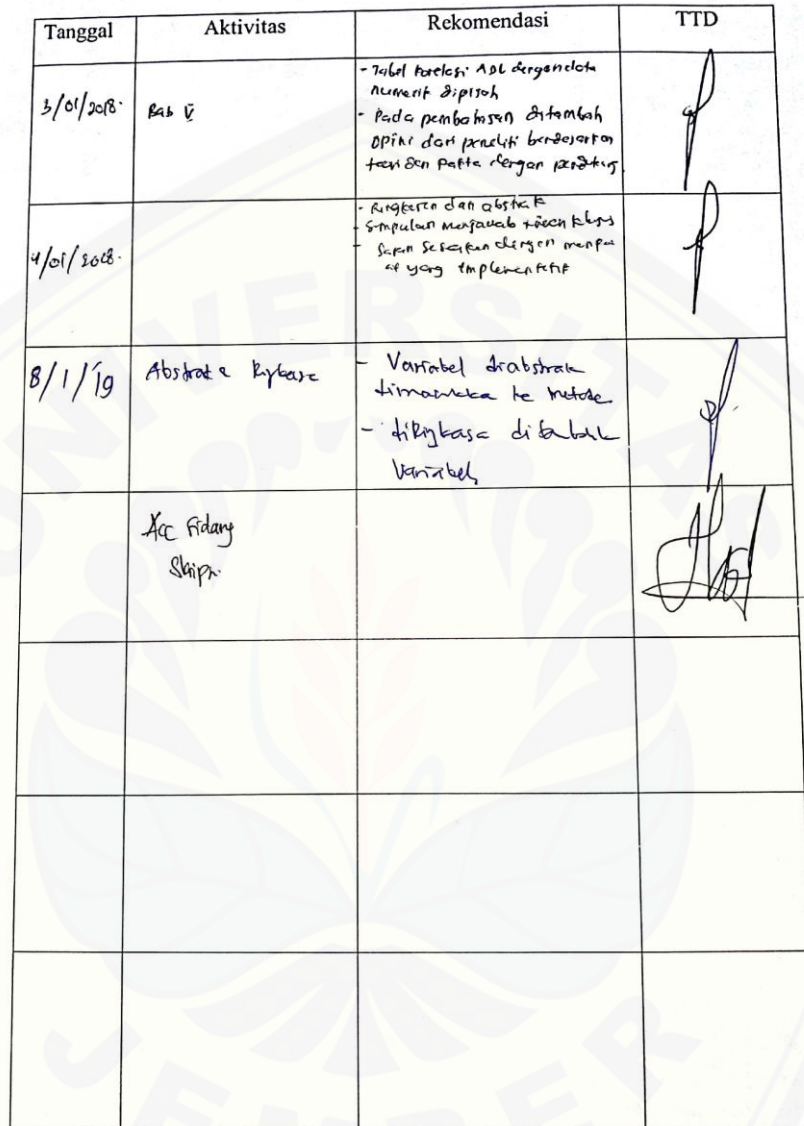 Tanggal Aktivitas Rekomendasi TTD
3/01/2018. Bab V
- Tabel korelasi ADL dengan data
numerik dipisah
- Pada pembahasan ditambah
opini dari peneliti berdasarkan
teori dan fakta dengan
4/01/2018.
- Ringkasan dan abstrak
- Simpulan menjawab tujuan khusus
- Saran sesuaikan dengan
yang implementatif
8/1/19 Abstrak & Ringkasa
- Variabel diabstrak
dimasukka ke metode
- diRingkasa ditambah
Variabel
Acc Sidang
Skripsi
UNIVERSITAS
JEMBER